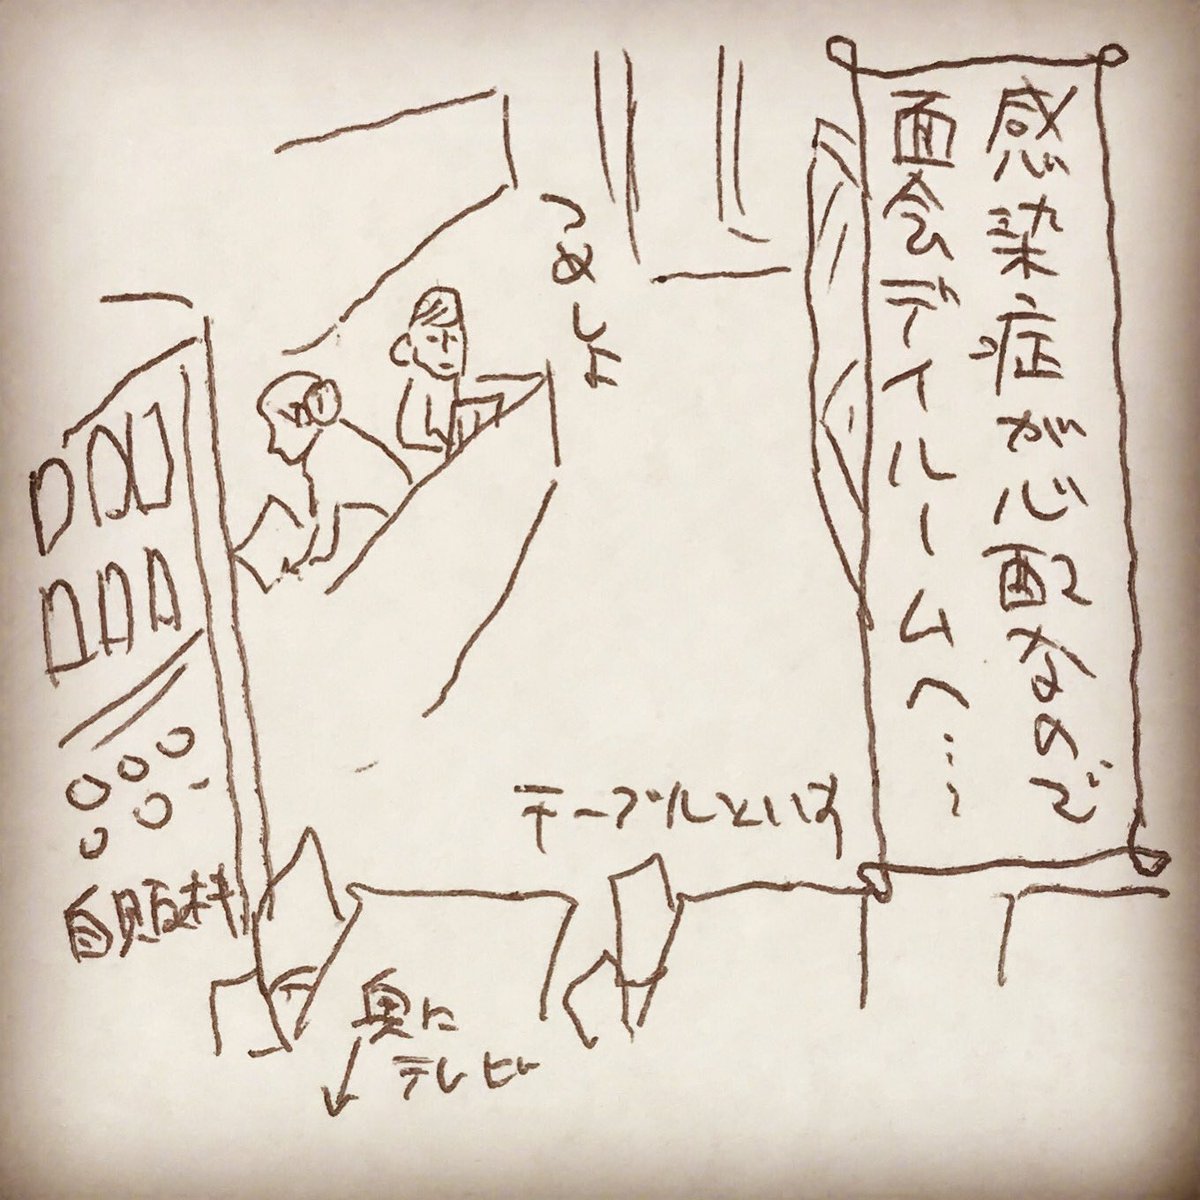 感染症が心配なので
面会デイルームへ…
つめしょ
テーブルといす
自販機
奥に
テレビ